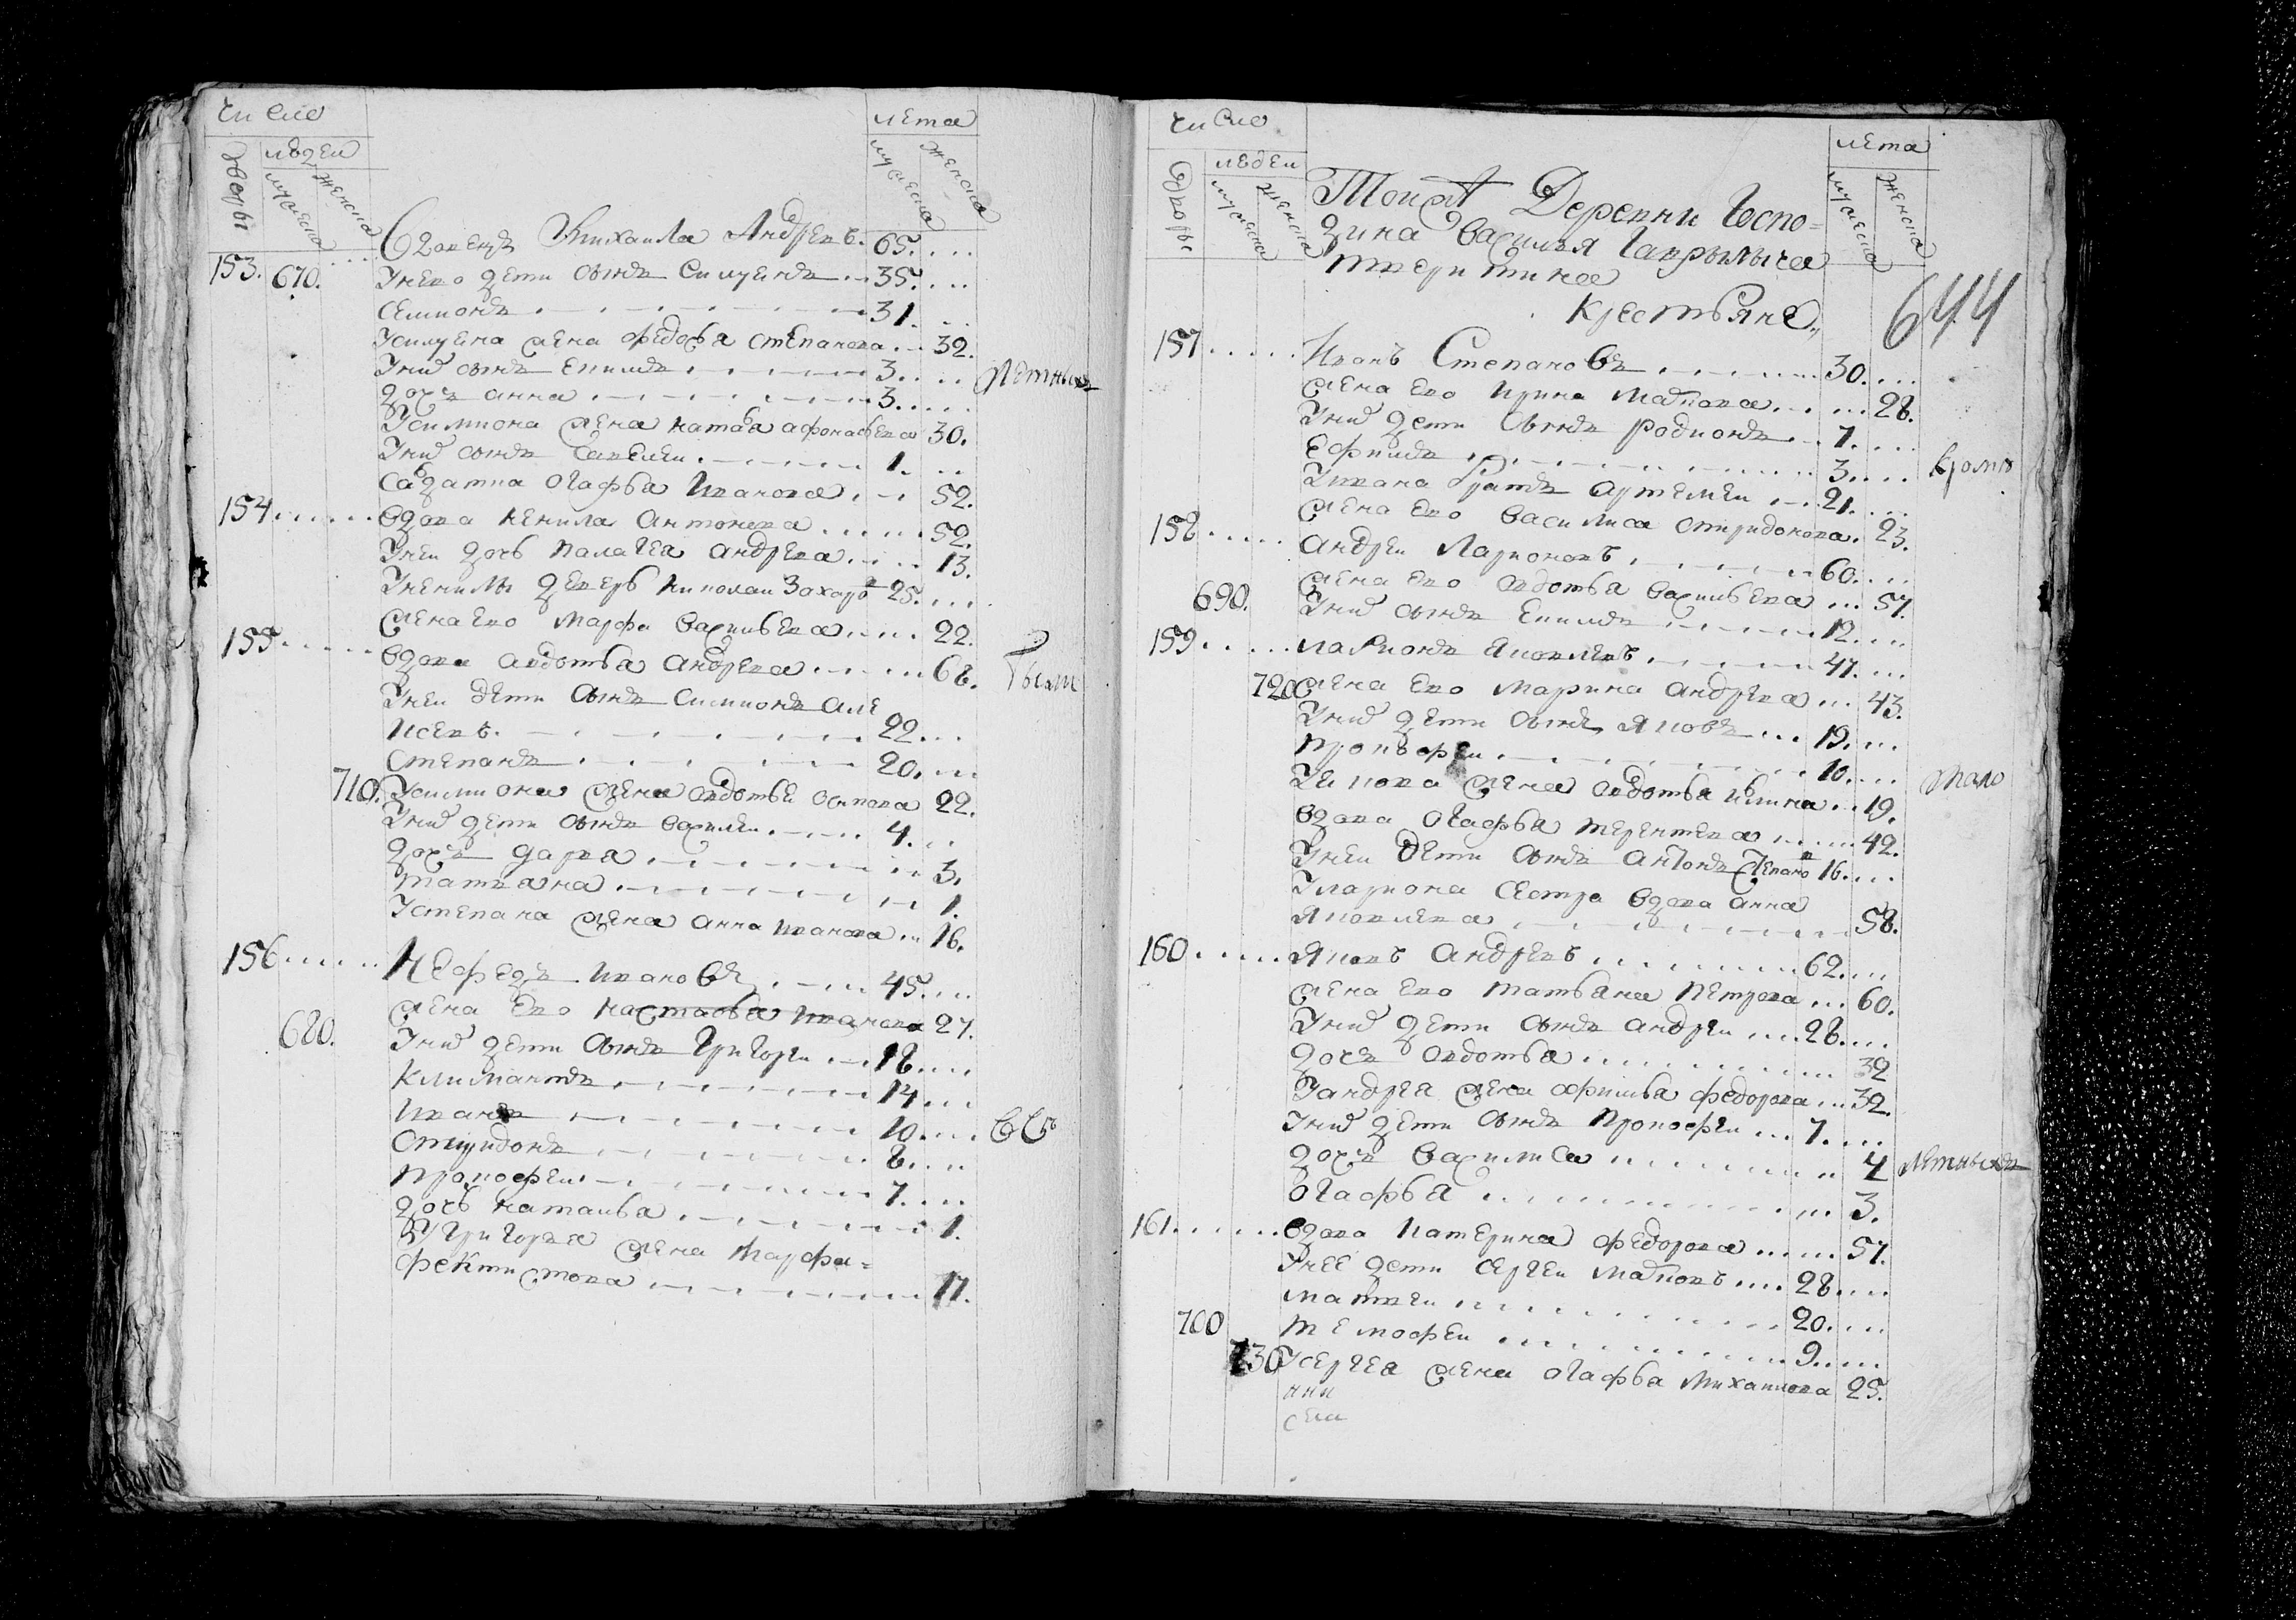 число
лета
дворы
людеи
мужеска
женска
мужеска
женска
153. 670. Вдовецъ Михаила Андреевъ. 65.
Унево дети сынъ Силуенъ 35.
Симионъ 31.
Усилуена жена федосья степанова 32.
Унихъ сынъ Екимъ 3. летныхъ
дочъ анна 3.
Усимиона жена наталья афонасьева 30.
Унихъ сынъ Савелеи 1.
Солдатка огафья Иванова 52.
154. вдова ненила антонева 52.
Унеи дочь палагея андреева 13.
Уненилы деверь николаи Захаровъ 25.
жена ево марфа васильева 22.
155. вдова авдотья андреева 68. были
Унеи дети сынъ симионъ але
ксеевъ. 22.
Степанъ 20.
710. Усимиона жена авдотья осипова 22.
Унихъ дети сынъ василеи 4.
дочъ дарья 3.
татьяна 1.
Устепана жена анна иванова 16.
156. Нефедъ ивановъ 45.
жена ево настасья иванова 27.
680. Унихъ дети сынъ григореи 18.
климантъ 14.
иванъ 10. всѣ
спиридонъ 8.
прокофеи 7.
дочь наталья 1.
Угригорья жена марфа
фектистова 17.
число
лета
дворы
людеи
мужеска
женска
мужеска
женска
Тоижъ Деревни Госпо=
дина василья Гаврилыча
тверитинова
крестьяне,,
644
157. Иванъ Степановъ 30.
жена ево ирина маркова 28.
Унихъ дети сынъ родионъ 7.
Ефимъ 3. кроме
Уивана братъ артемеи 21.
жена ево василиса спиридонова. 23.
158. андреи Ларионовъ 60.
жена ево авдотья васильева 57.
690. Унихъ сынъ Екимъ 12.
159. ларионъ яковлевъ 47.
720 жена ево марина андреева 43.
Унихъ дети сынъ яковъ 19.
прокофеи 10. того
Уякова жена авдотья ильина 19.
вдова огафья терентева 42.
Унеи дети сынъ антонъ степановъ 16.
Улариона сестра вдова анна
яковлева 58.
160 яковъ андреевъ 62.
жена ево татьяна петрова 60.
Унихъ дети сынъ андреи 28.
дочъ авдотья 32
Уандрея жена афимья федорова 32.
Унихъ дети сынъ прокофеи 7.
дочъ василиса 4 летныхъ
огафья 3.
161. вдова катерина федорова 57.
Унее дети сергеи марковъ 28.
матвеи 20.
700 тимофеи 9.
730 Усергея жена огафья михаилова 25.